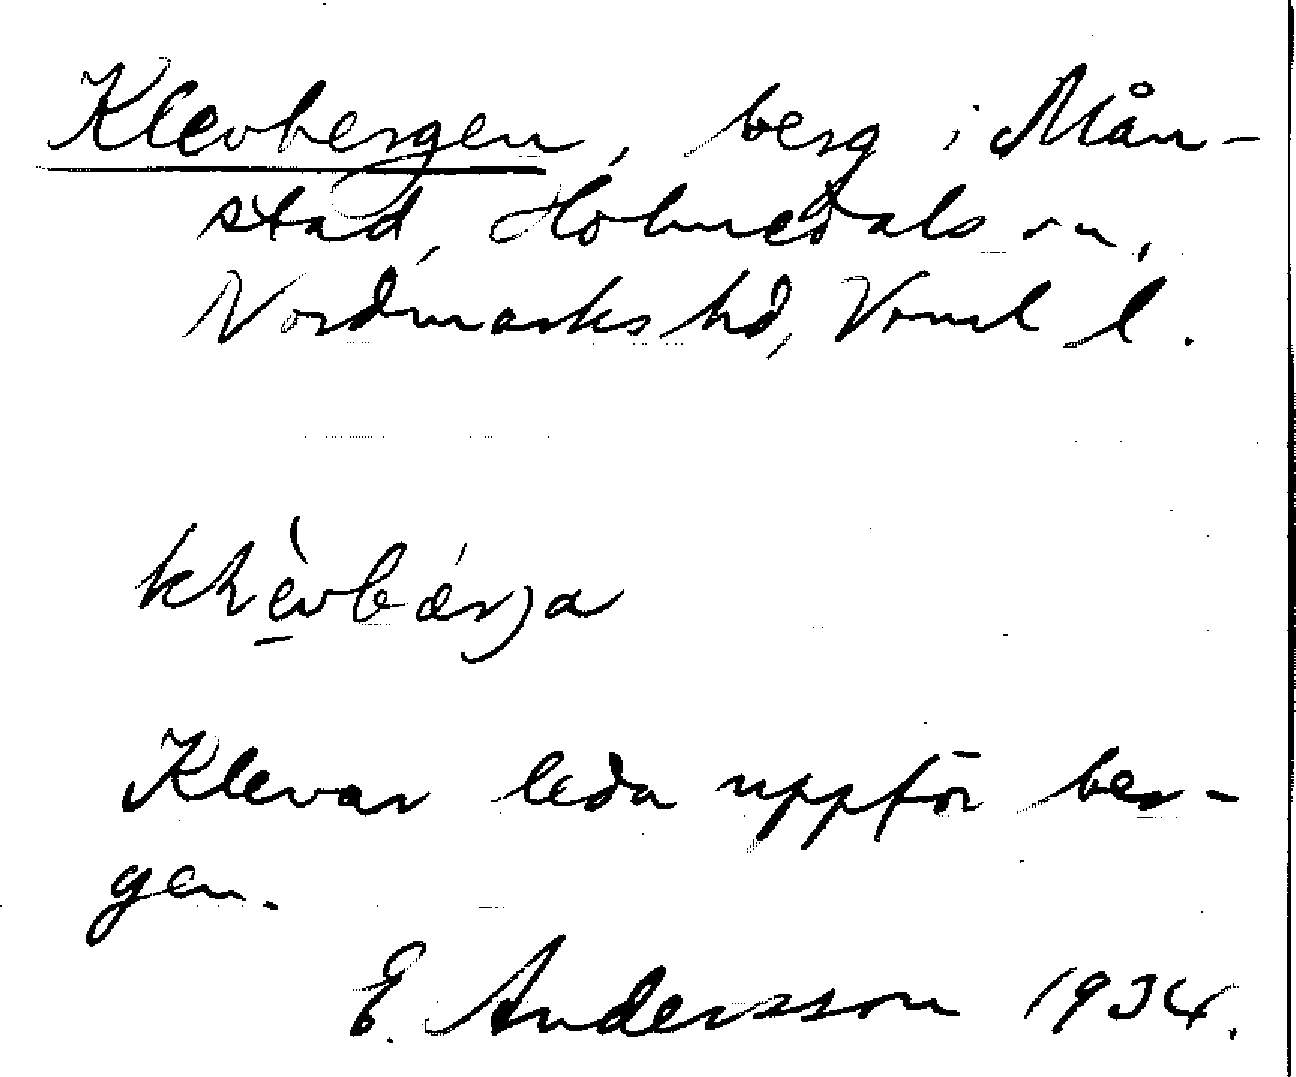 Klevbergen, berg i Mån-
stad, Holmedals sn,
Nordmarks hd, Vrml l.
Klevar leda uppför ber-
gen.
E. Andersson 1934.